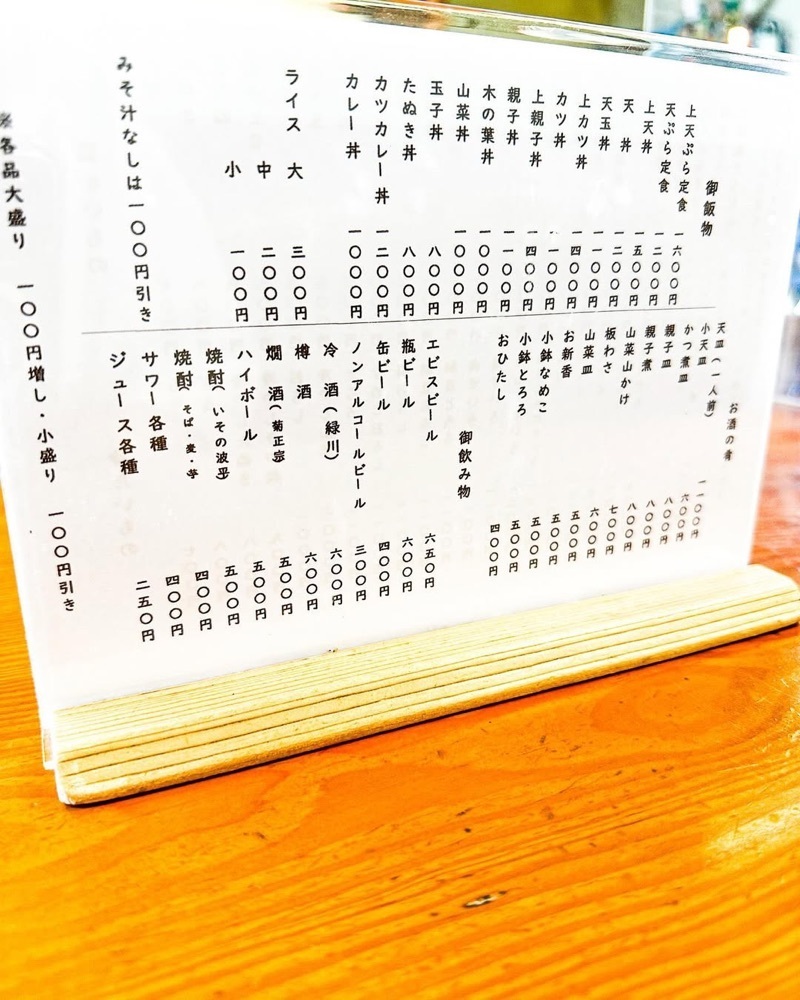 御飯物
上天ぷら定食 一六〇〇円
天ぷら定食 一二〇〇円
上天丼 一五〇〇円
天 丼 一二〇〇円
天玉丼 一一〇〇円
上カツ丼 一四〇〇円
カツ丼 一一〇〇円
上親子丼 一四〇〇円
親子丼 一一〇〇円
木の葉丼 一〇〇〇円
山菜丼 一〇〇〇円
玉子丼 八〇〇円
たぬき丼 八〇〇円
カツカレー丼 一二〇〇円
カレー丼 一〇〇〇円
ライス 大 三〇〇円
中 二〇〇円
小 一〇〇円
みそ汁なしは一〇〇円引き
お酒の肴
天皿(一人前) 一一〇〇円
小天皿 六〇〇円
かつ煮皿 八〇〇円
親子皿 八〇〇円
親子煮 八〇〇円
山菜山かけ 七〇〇円
板わさ 六〇〇円
山菜皿 五〇〇円
お新香 五〇〇円
小鉢なめこ 五〇〇円
小鉢とろろ 五〇〇円
おひたし 四〇〇円
御飲み物
エビスビール 六五〇円
瓶ビール 六〇〇円
缶ビール 四〇〇円
ノンアルコールビール 三〇〇円
冷 酒(緑川) 六〇〇円
樽 酒 六〇〇円
燗 酒(菊正宗) 五〇〇円
ハイボール 五〇〇円
焼酎(いその波) 五〇〇円
焼酎(そば・麦・芋) 四〇〇円
サワー各種 四〇〇円
ジュース各種 二五〇円
※各品大盛り 一〇〇円増し・小盛り 一〇〇円引き